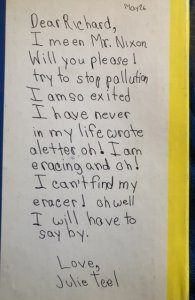 May 26
Dear Richard,
I meen Mr. Nixon
Will you please!
try to stop pollution
I am so exited
I have never
in my life wrote
a letter, oh! I am
eracing and oh!
I can't find my
eracer! oh well
I will have to
say by.
Love,
Julie Teel